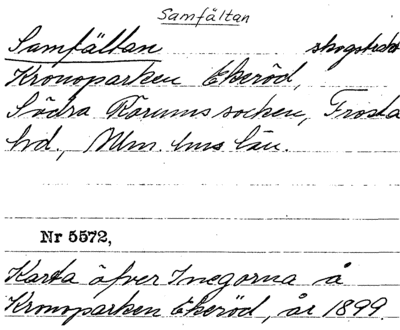 Samfältan
Samfältan skogstrakt
Kronoparken Ekeröd,
Södra Rörums socken, Frosta
hd., Mlm. hus län.
Nr 5572,
Karta öfver Inegorna å
Kronoparken Ekeröd, år 1899.